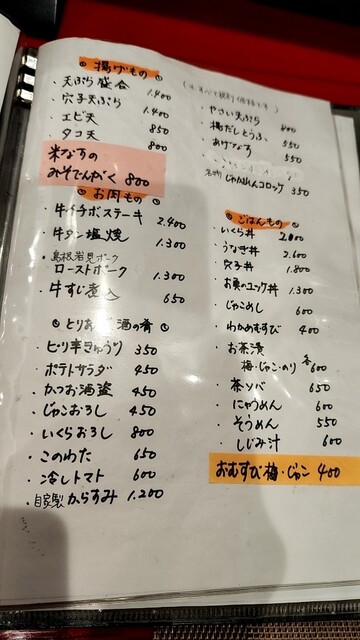 揚げもの
・天ぷら盛合 1.400
・穴子天ぷら 1.400
・エビ天 850
・タコ天 800
米なすの
みそでんがく 800
お肉もの
・牛イチボステーキ 2.400
・牛タン塩焼 1.300
・島根岩見ポーク
ローストポーク 1.300
・牛すじ煮込 650
とりあ 酒の肴
・ピリ辛きゅうり 350
・ポテトサラダ 450
・かつお酒盗 450
・じゃこおろし 450
・いくらおろし 800
・このわた 650
・冷しトマト 600
・自家製からすみ 1.200
(※すべて税別価格です)
・やさい天ぷら 800
・揚だしとうふ 550
・あげなす 550
名物 じゃがれんコロッケ 350
ごはんもの
・いくら丼 2.000
・うなぎ丼 2.600
・穴子丼 1.800
・お肉のユッケ丼 1.300
・じゃこめし 600
・わかめむすび 400
・お茶漬
梅・じゃこ・のり 各600
・茶ソバ 650
・にゅうめん 600
・そうめん 550
・しじみ汁 600
おむすび梅・じゃこ 400